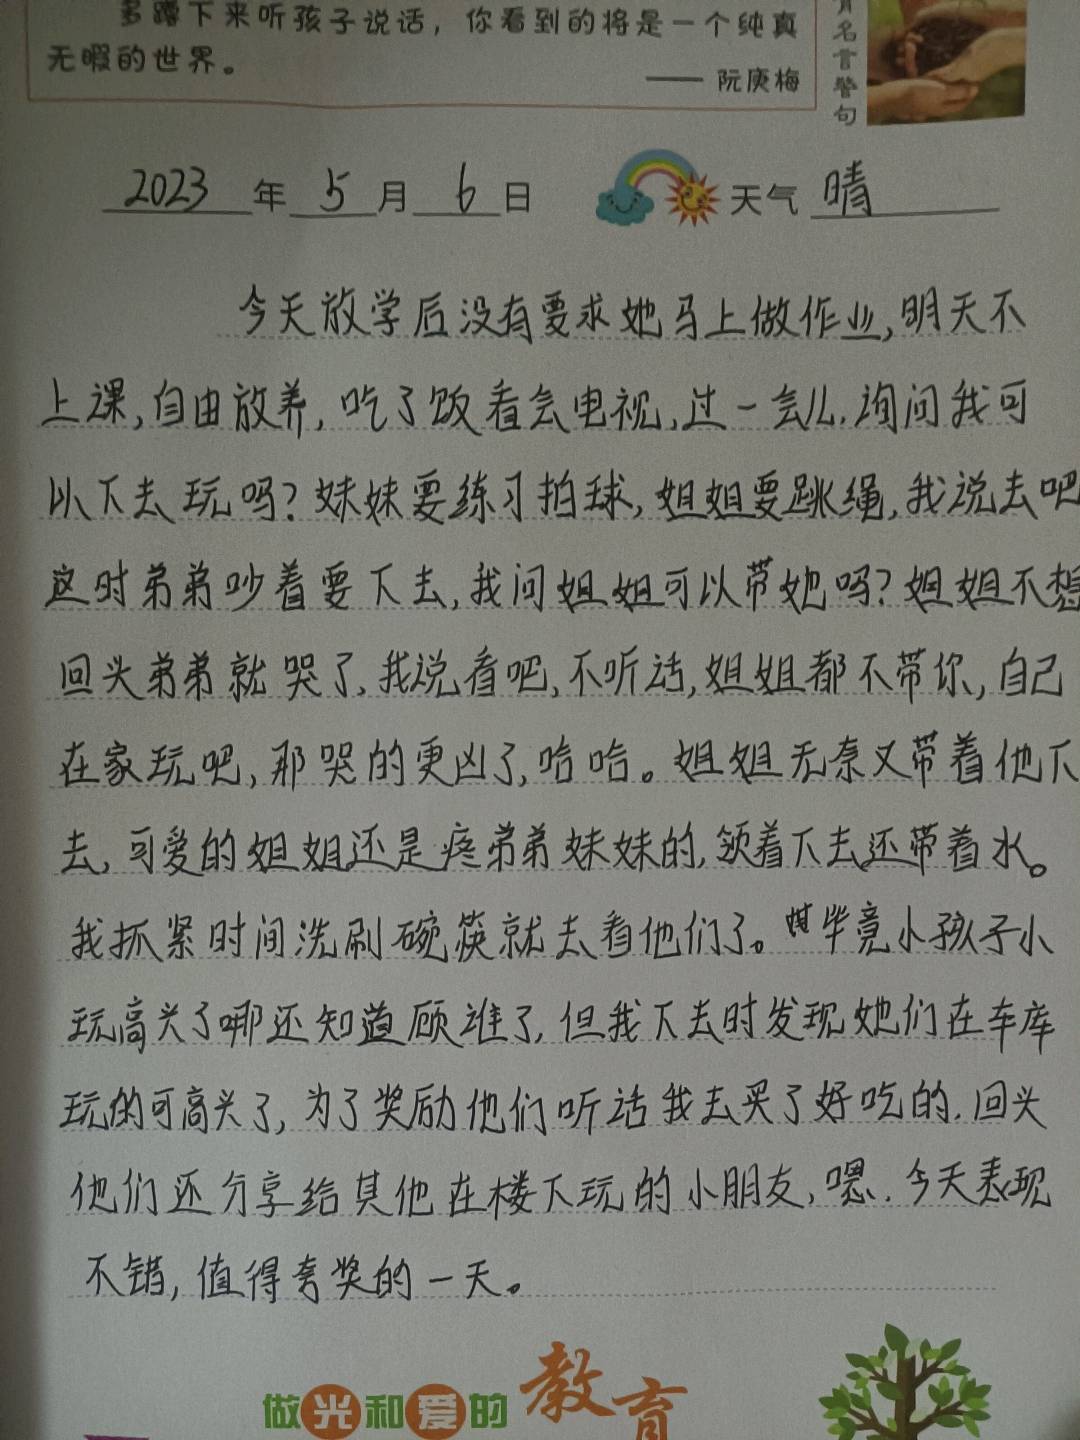 多蹲下来听孩子说话，你看到的将是一个纯真
无暇的世界。
—— 阮庚梅
名言警句
2023年5月6日 天气 晴
今天放学后没有要求她马上做作业,明天不
上课,自由放养,吃了饭看会电视,过一会儿.询问我可
以下去玩吗?妹妹要练习拍球,姐姐要跳绳,我说去吧
这时弟弟吵着要下去,我问姐姐可以带她吗?姐姐不想
回头弟弟就哭了,我说看吧,不听话,姐姐都不带你,自己
在家玩吧,那哭的更凶了,哈哈。姐姐无奈又带着他下
去,可爱的姐姐还是疼弟弟妹妹的,领着下去还带着水。
我抓紧时间洗刷碗筷就去看他们了。毕竟小孩子小
玩高兴了哪还知道顾谁了,但我下去时发现她们在车库
玩的可高兴了,为了奖励他们听话我去买了好吃的.回头
他们还分享给其他在楼下玩的小朋友,嗯.今天表现
不错,值得夸奖的一天。
做光和爱的教育